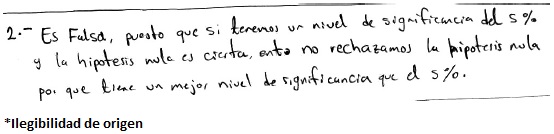 2.- Es Falsa, puesto que si tenemos un nivel de significancia del 5%
y la hipotesis nula es cierta, ento no rechazamos la hipotesis nula
por que tiene un mejor nivel de significancia que el 5%.
*Ilegibilidad de origen